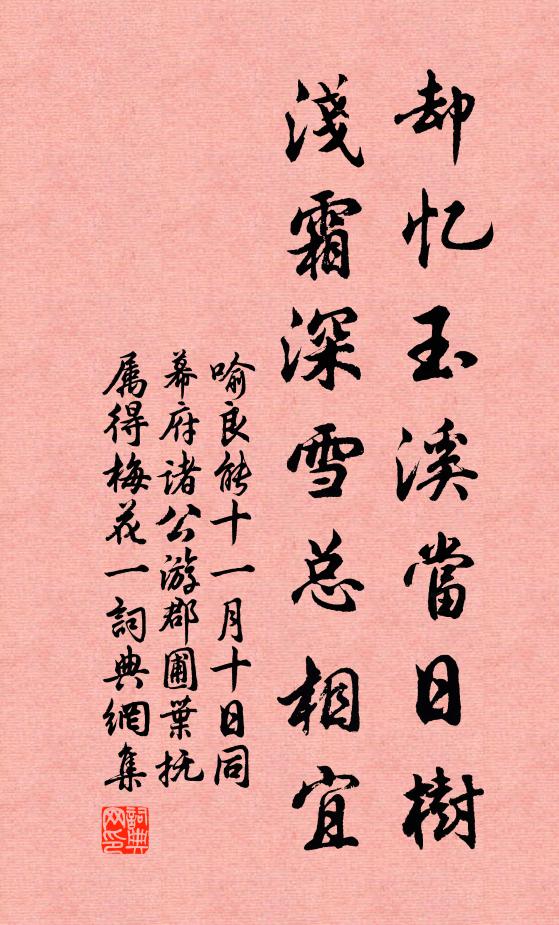 却忆玉溪當日樹
淺霜深雪总相宜
喻良能十一月十日同
幕府諸公游郡圃葉抚
属得梅花一詞典網集
詞典网印